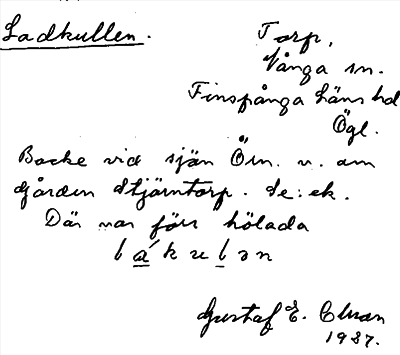 Ladkullen.
Torp,
Vånga sn.
Finspånga läns hd
Ögl.
Backe vid sjön Örn. v. om
gården Stjärntorp. Se: ek.
Där var förr hölada
Gustaf E.
1937.